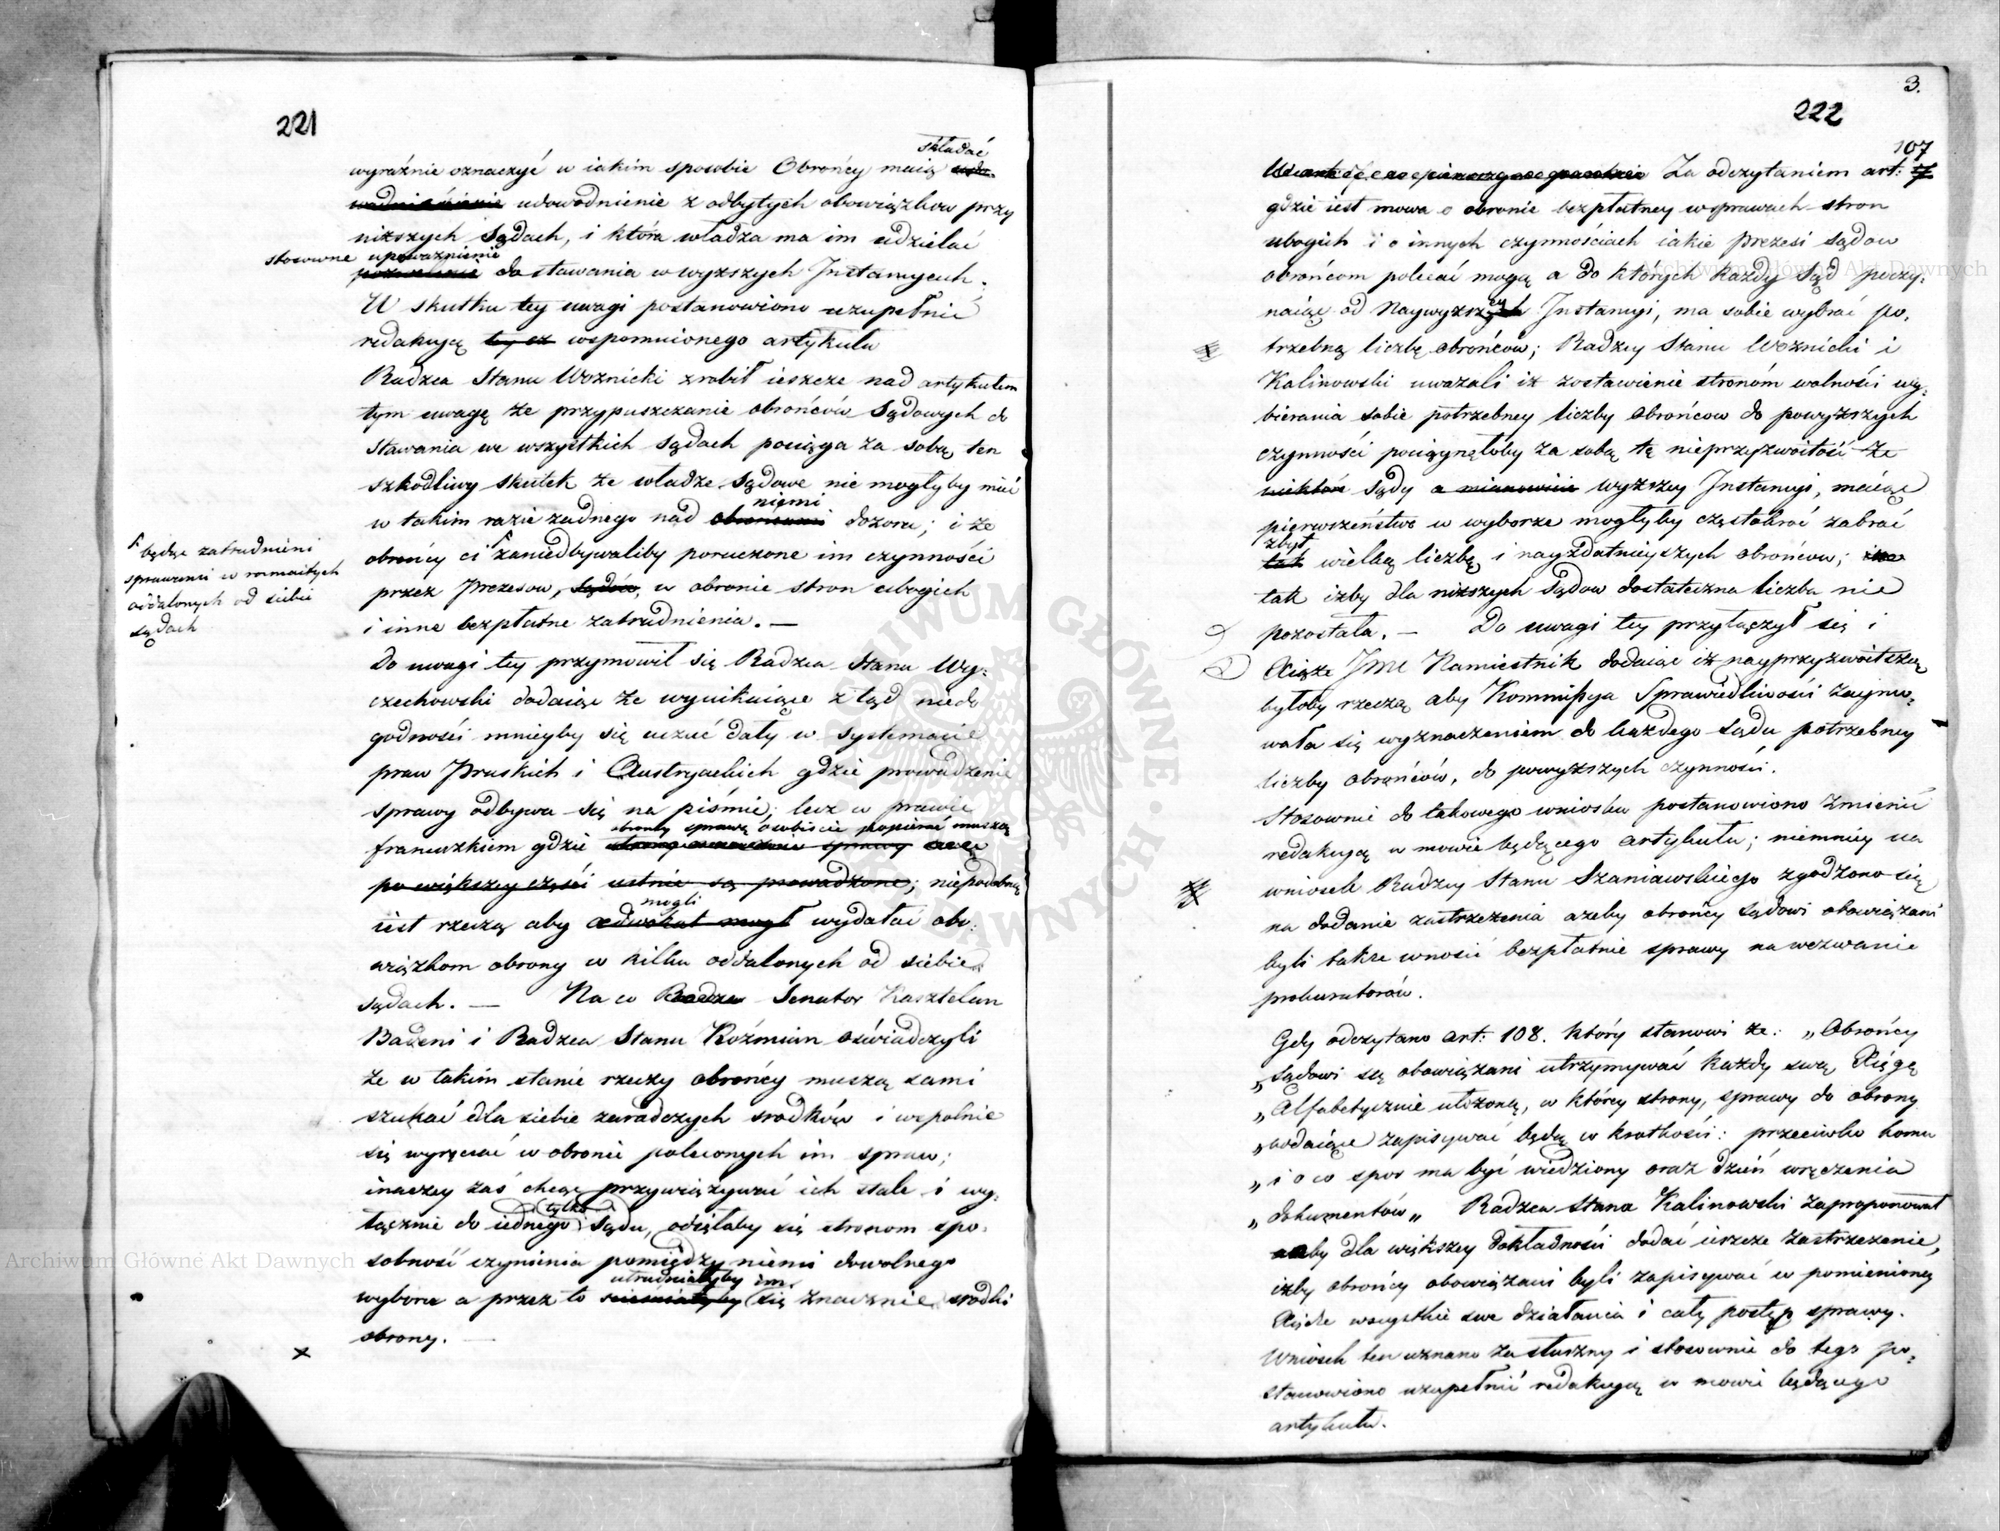 221
składać
wyraźnie oznaczyć w iakim sposobie Obrońcy maią
udowodnienie z odbytych obowiązków przy
niższych Sądach, i która władza ma im udzielać
stosowne upoważnienie
pozwolenie do stawania w wyższych Instancyach.
W skutku tey uwagi postanowiono uzupełnić
redakcyą tey co wspomnionego artykułu
Radzca Stanu Woznicki zrobił ieszcze nad artykułem
tym uwagę że przypuszczanie obrońców Sądowych do
stawania we wszystkich sądach pociąga za sobą ten
szkodliwy skutek że władze Sądowe nie mogłyby mieć
niemi
w takim razie żadnego nad obroncami dozoru; i że
obrońcy ci zaniedbywaliby poruczone im czynności
będąc zatrudnieni
sprawami w rozmaitych
oddalonych od siebie
sądach
przez Prezesow, Sądów, w obronie stron ubogich
i inne bezpłatne zatrudnienia. —
Do uwagi tey przymówił się Radzca Stanu Wy-
czechowski dodaiąc że wynikaiące z tąd niedo
godności mnieyby się uczuć dały w systemacie
praw Pruskich i Austryackich gdzie prowadzenie
sprawy odbywa się na piśmie; lecz w prawie
strony sprawę osobiście popierać muszą
francuzkiem gdzie
po większey części ustnie są prowadzone; niepodobną
mogli
iest rzeczą aby adwokat mogł wydołać obo-
wiązkom obrony w kilku oddalonych od siebie
sądach. — Na co Radzca Senator Kasztelan
Badeni i Radzca Stanu Koźmian oświadczyli
że w takim stanie rzeczy obrońcy muszą sami
szukać dla siebie zaradczych srodków i wspólnie
się wyręczać w obronie poleconych im spraw;
inaczey zaś chcąc przywiązywać ich stale i wy-
tylko
łącznie do iednego Sądu, odiętaby się stronom spo-
sobność czynienia pomiędzy niemi dowolnego
utrudniałyby im
wyboru a przez to scieśniałyby się znacznie srodki
obrony. —
3.
222
107
Za odczytaniem art:
gdzie iest mowa o obronie bezpłatney w sprawach stron
ubogich i o innych czynnościach iakie Prezesi sądow
obrońcom polecać mogą a do których każdy Sąd poczy-
naiąc od Naywyższey Instancyi, ma sobie wybrać po-
trzebną liczbę obrońców; Radzcy Stanu Woznicki i
Kalinowski uwazali iż zostawienie stronóm wolności wy-
bierania sobie potrzebney liczby obrońcow do powyższych
czynności pociągnęłoby za sobą tę nieprzyzwoitość że
niektóre sądy a mianowicie wyższey Instancyi, maiąc
pierwszeństwo w wyborze mogłyby częstokroć zabrać
zbyt
tak wielką liczbę i nayzdatnieyszych obrońców;
tak iżby dla niższych Sądow dostateczna liczba nie
pozostała. — Do uwagi tey przyłączył się i
Xiąże Jmc Namiestnik dodaiąc iż nayprzyzwoitszą
byłoby rzeczą aby Kommissya Sprawiedliwości zaymo-
wała się wyznaczeniem do każdego sądu potrzebney
liczby obrońców, do powyższych czynności.
Stosownie do takowego wniosku postanowiono zmienić
redakcyą w mowie będącego artykułu; niemniey na
wniosek Radzcy Stanu Szaniawskiego zgodzono się
na dodanie zastrzeżenia ażeby obrońcy sądowi obowiązani
byli także wnosić bezpłatnie sprawy na wezwanie
prokuratorów.
Gdy odczytano art: 108. który stanowi że: „Obrońcy
„Sądowi są obowiązani utrzymywać każdy swą Xięgę
„Alfabetycznie ułożoną, w którey strony, sprawy do obrony
„podaiące zapisywać będą w krotkości: przeciwko komu
„i o co spor ma być wiedziony oraz dzień wręczenia
„dokumentów„ Radzca Stanu Kalinowski zaproponował
aby dla większey dokładności dodać ieszcze zastrzeżenie,
iżby obrońcy obowiązani byli zapisywać w pomienioney
Xiędze wszystkie swe działania i cały postęp sprawy.
Wniosek ten uznano za słuszny i stosownie do tego po-
stanowiono uzupełnić redakcyą w mowie będącego
artykułu.
Archiwum Główne Akt Dawnych
Archiwum Główne Akt Dawnych
ARCHIWUM GŁÓWNE AKT DAWNYCH